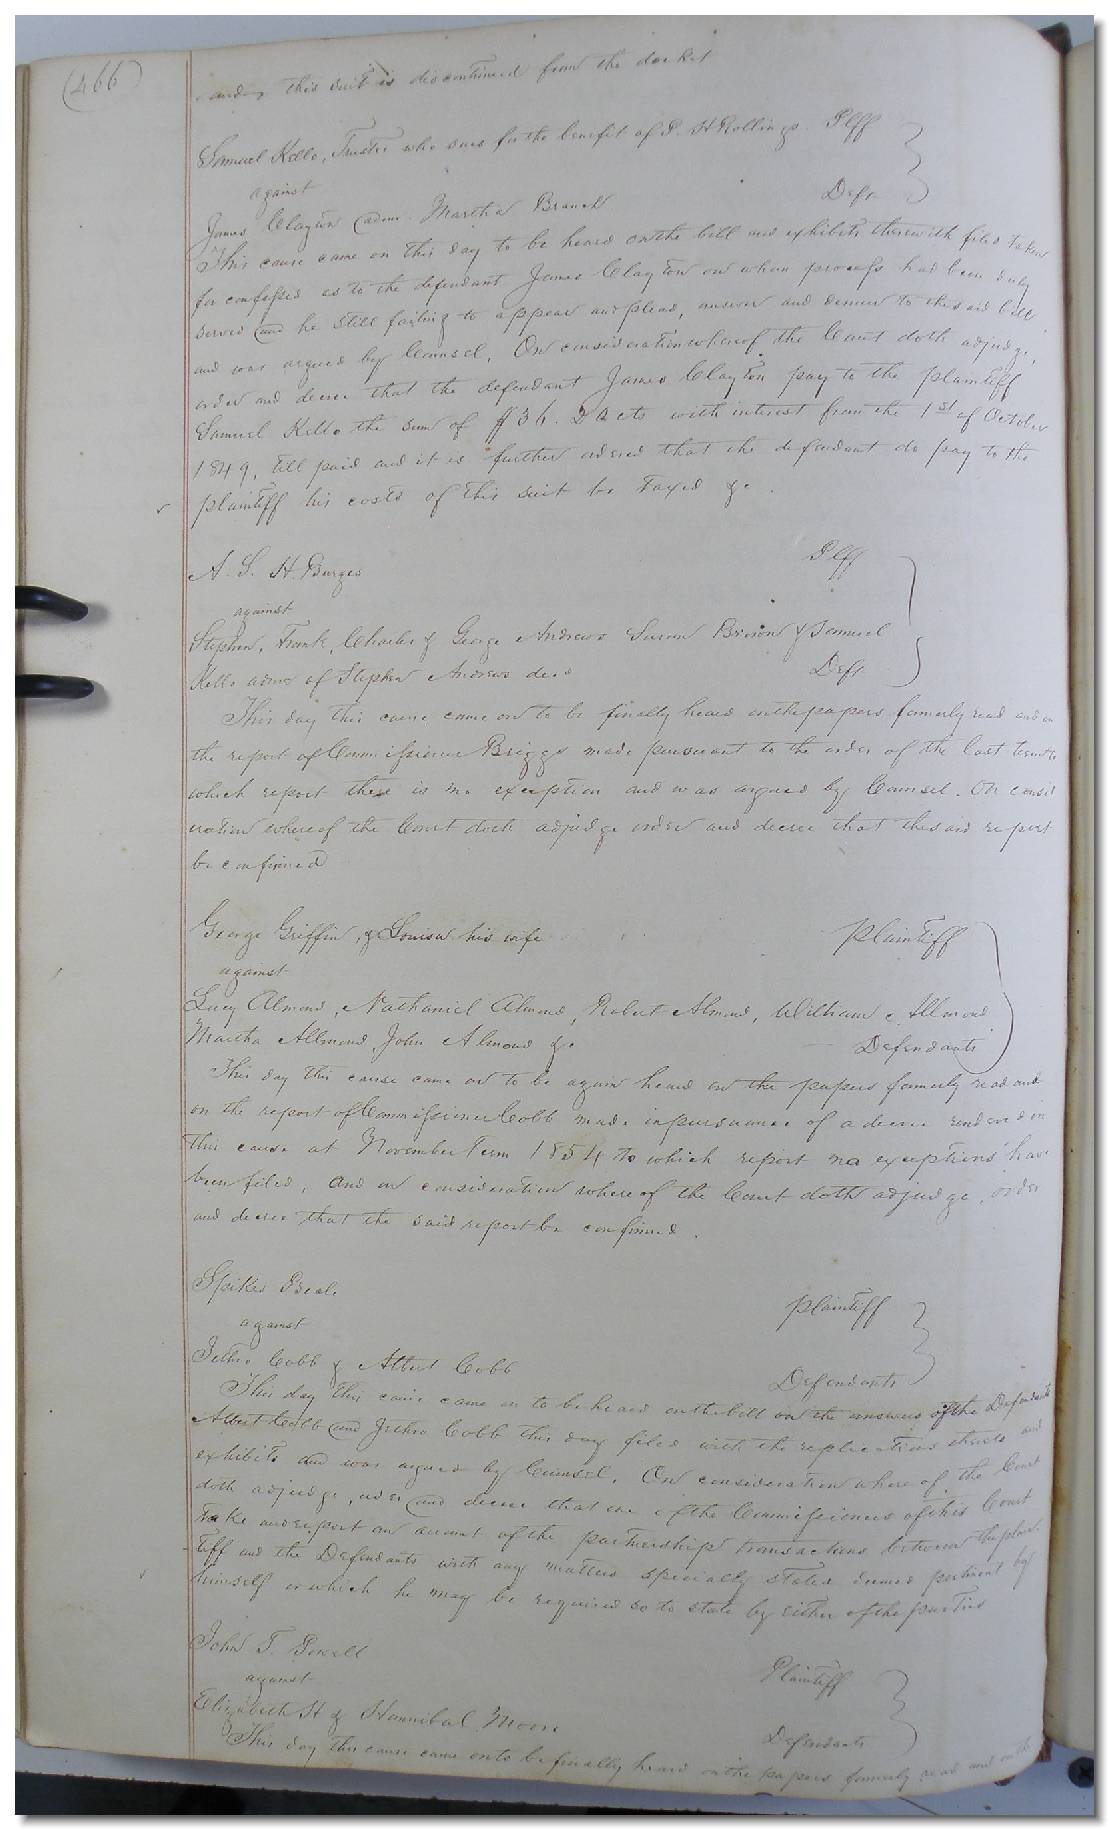 (466)
and this suit is discontinued from the docket
Samuel Kello, Trustee who sues for the benefit of P. H Rollings Plff
against
James Clayton admr Martha Branch Deft
This cause came on this day to be heard on the bill and exhibits therewith filed taken
for confessed as to the defendant James Clayton on whom process had been duly
served and he still failing to appear and plead, answer and demur to the said bill
and was argued by Counsel. On consideration whereof the Court doth adjudge,
order and decree that the defendant James Clayton pay to the plaintiff
Samuel Kello the sum of $36. cts with interest from the 1st of October
1849, till paid and it is further ordered that the defendant do pay to the
plaintiff his costs of this suit to be taxed &c.
A. S. H. Burges Plff
against
Stephen, Frank, Charles & George Andrews Susan Brown & Samuel
Kello admr of Stephen Andrews decd Deft
This day this cause came on to be finally heard on the papers formerly read and on
the report of Commissioner Briggs made pursuant to the order of the last term to
which report there is no exception and was argued by Counsel. On consid
eration whereof the Court doth adjudge order and decree that the said report
be confirmed
George Griffin, & Louisa his wife Plaintiff
against
Lucy Almond, Nathaniel Almond, Robert Almond, William Allmond
Martha Allmond, John Almond &c Defendants
This day this cause came on to be again heard on the papers formerly read and
on the report of Commissioner Cobb made in pursuance of a decree rendered in
this cause at November Term 1854 to which report no exceptions have
been filed, and on consideration whereof the Court doth adjudge, order
and decree that the said report be confirmed.
Spikes Beal. Plaintiff
against
Jethro Cobb & Albert Cobb Defendants
This day this cause came on to be heard on the bill on the answers of the Defendants
Albert Cobb and Jethro Cobb this day filed with the replications thereto and
exhibits and was argued by Counsel. On consideration where of, the Court
doth adjudge, order and decree that one of the Commissioners of this Court
take and report an account of the partnership transactions between the plain
tiff and the Defendants with any matters specially stated deemed pertinent by
himself or which he may be required so to state by either of the parties
John T. Powell Plaintiff
against
Elizabeth H & Hannibal Moore Defendants
This day this cause came on to be finally heard on the papers formerly read and on the